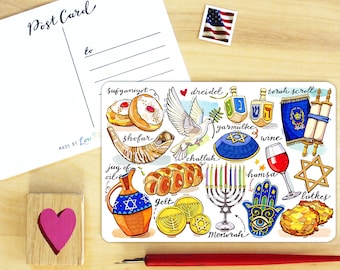 Post Card
to
MADE BY
sufganiyot
dreidel
torah scroll
shofar
yarmulke
wine
challah
hamsa
jug of
oil
gelt
latkes
Menorah